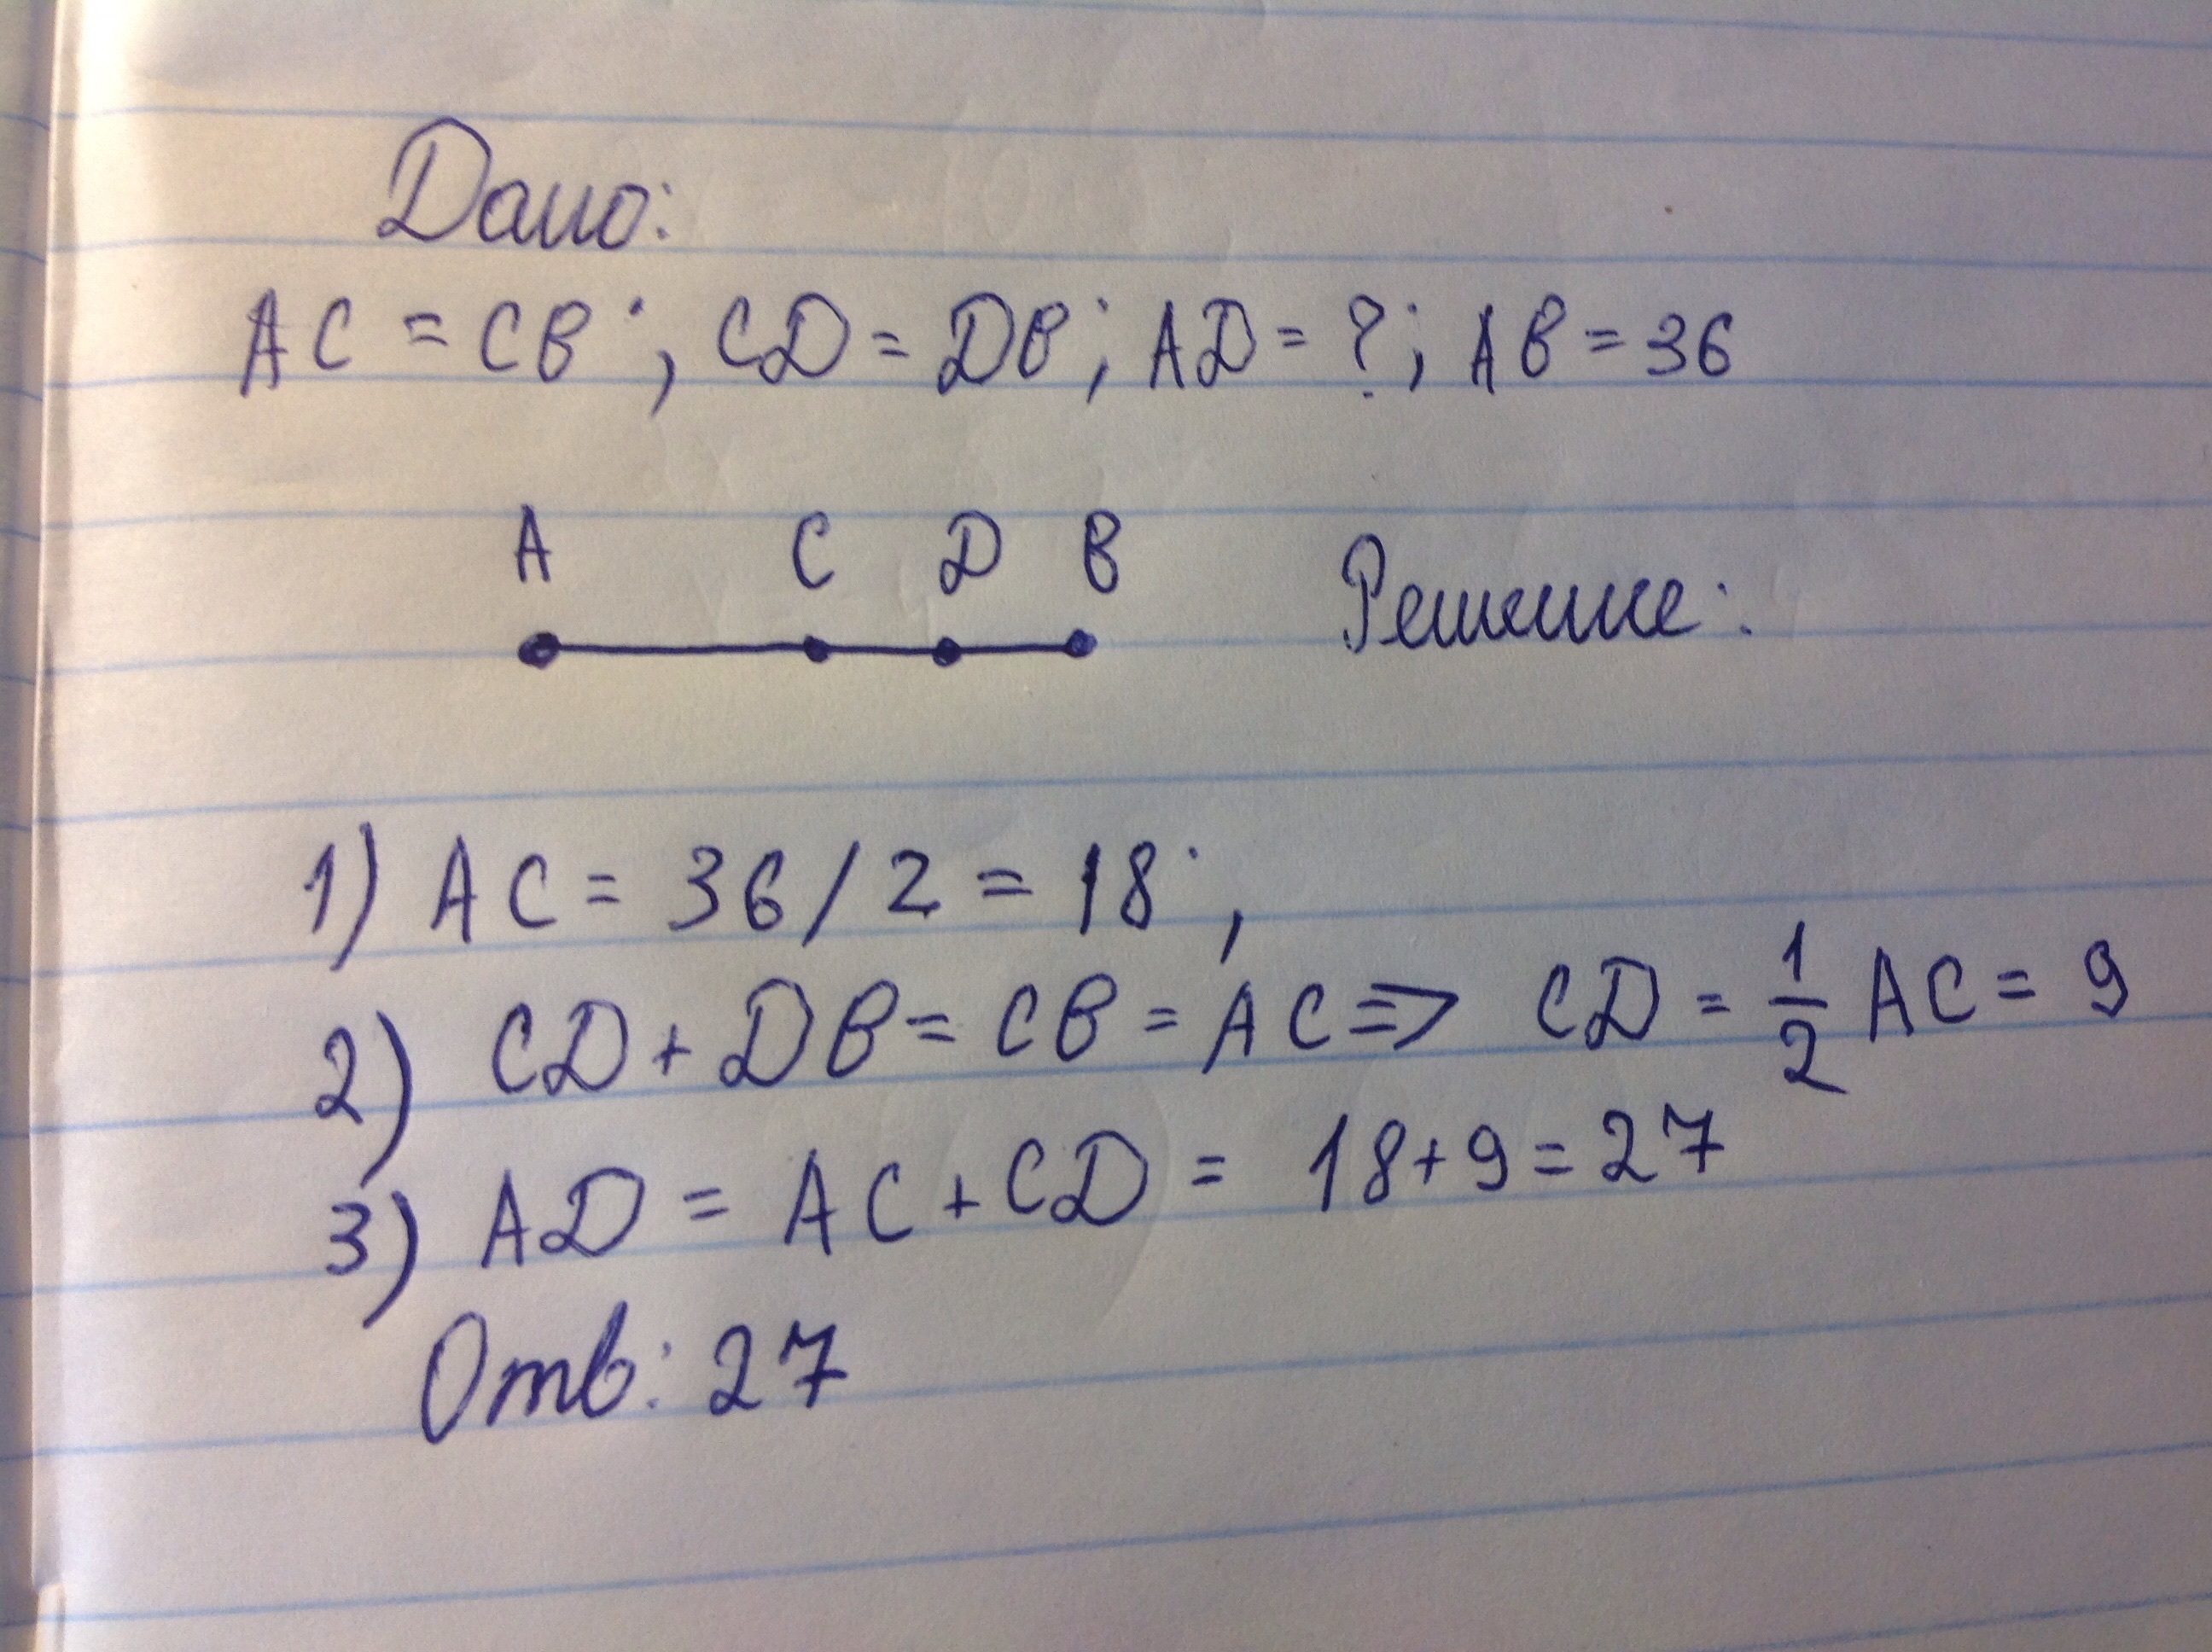 Дано:
AC = CB; CD = DB; AD = ?; AB = 36
A C D B
Решение:
1) AC = 36/2 = 18;
2) CD + DB = CB = AC => CD = 1/2 AC = 9
3) AD = AC + CD = 18 + 9 = 27
Отв: 27